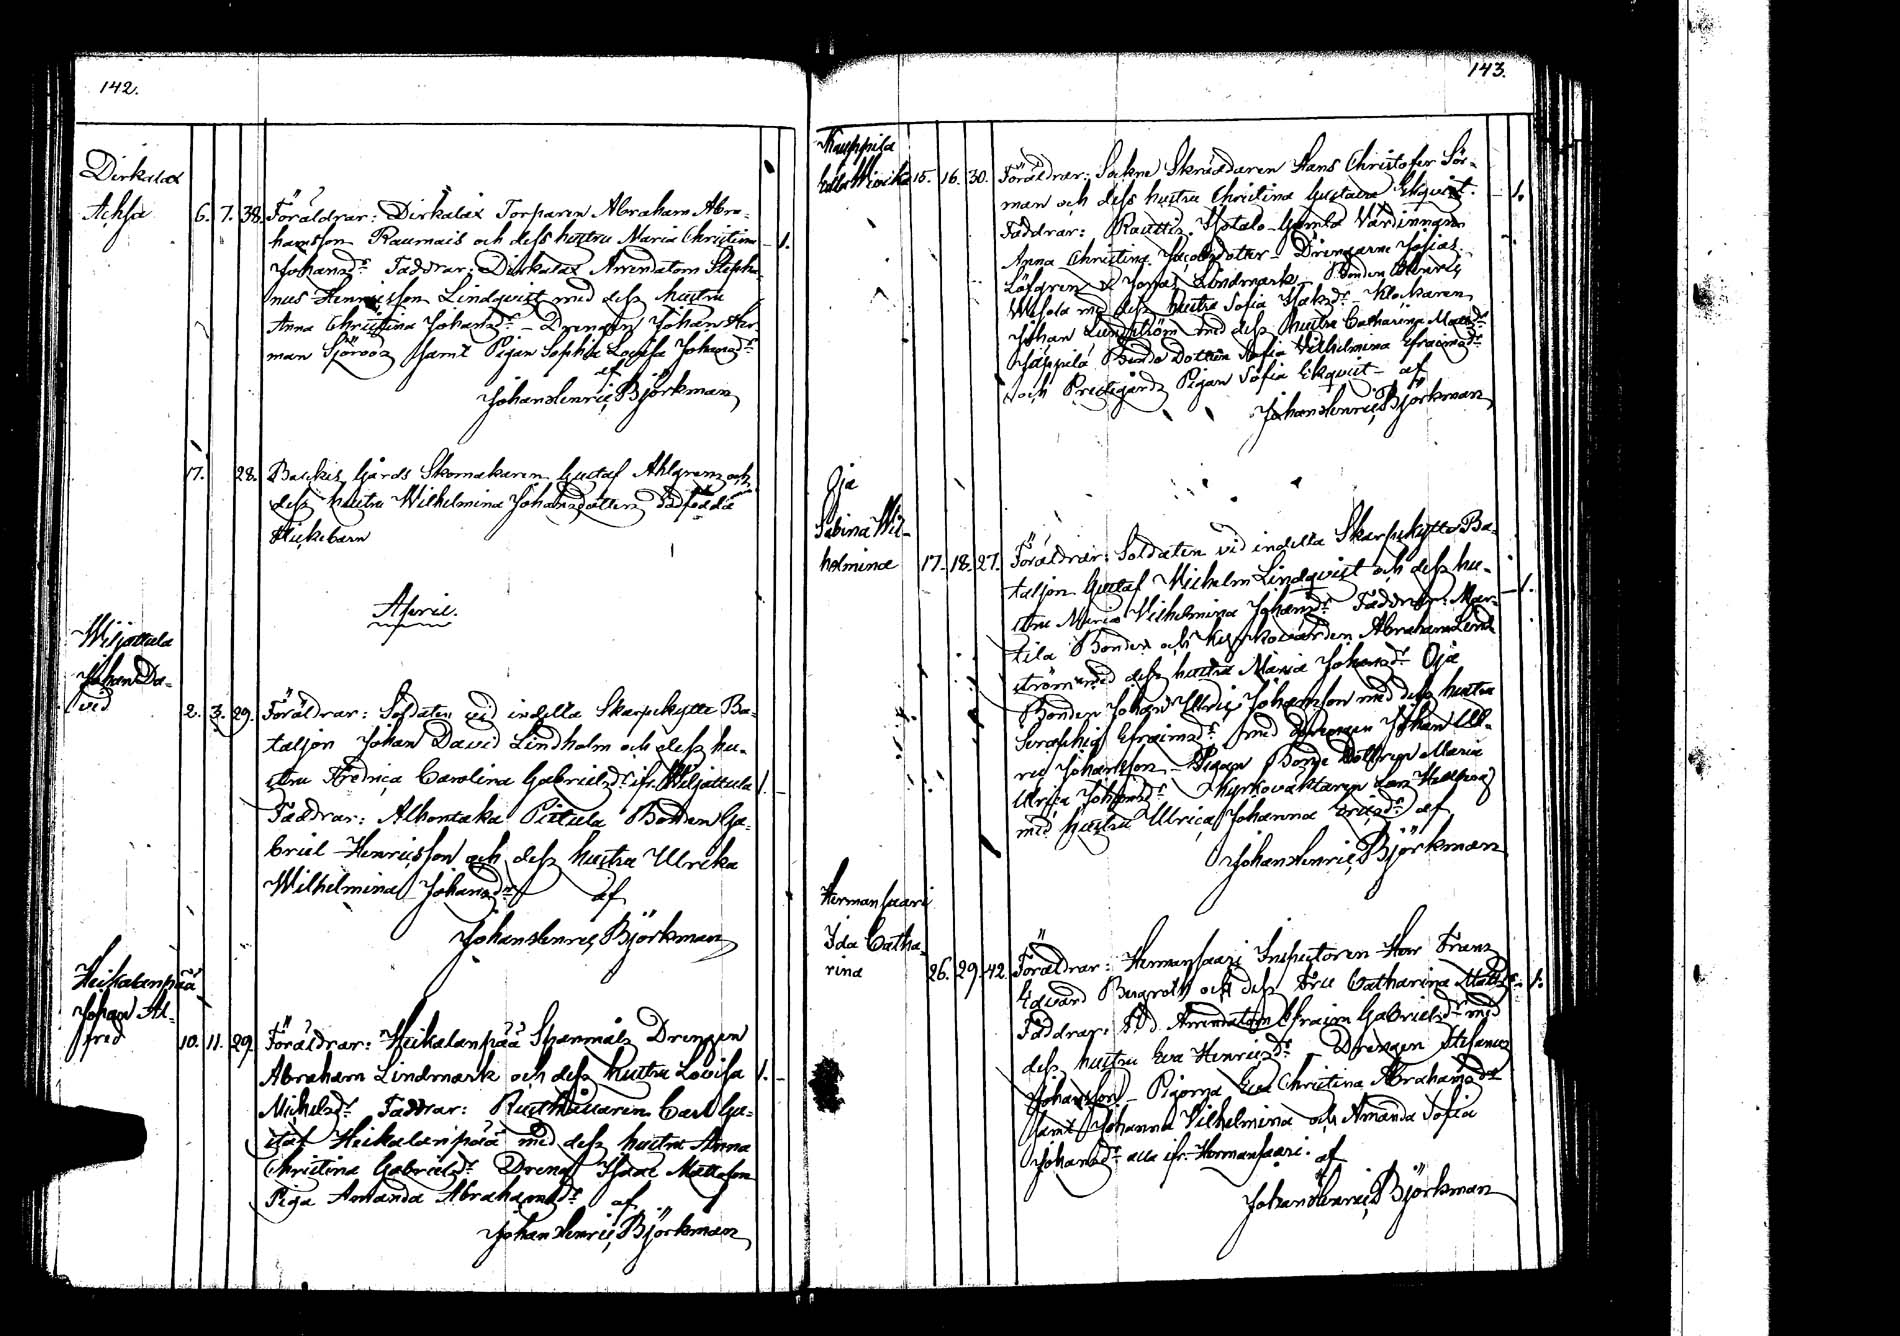 142.
Dirkalax
Achsa 6. 7. 38. Föräldrar: Dirkalax Torparen Abraham Abra-
hamsson Raumais och dess hustru Maria Christina 1.
Johansdr. Faddrar: Dirkalax Arrendatorn Stepha-
nus Henricsson Lindqvist med dess hustru
Anna Christina Johansdr - Drengen Johan Her-
man Sjöroos samt Pigan Sophia Lovisa Johansdr
af
Johan Henric Björkman
17. 28. Backis Gårds Skomakaren Gustaf Ahlgrens och
dess hustru Wilhelmina Johansdotters dödfödda
Flickebarn
April.
Wiljattula
Johan Da-
vid 2. 3. 29. Föräldrar: Soldaten vid indelta Skarpskytte Ba-
taljon Johan David Lindholm och dess hu-
stru Fredrica Carolina Gabrielsdr ifr. Wiljattula 1.
Faddrar: Alhontaka Pietula Bonden Ga-
briel Henricsson och dess hustru Ulrika
Wilhelmina Johansdr af
Johan Henric Björkman
Heikalanpää
Johan Al-
fred 10. 11. 29. Föräldrar: Heikalanpää Spanmåls Drengen
Abraham Lindmark och dess hustru Lovisa 1.
Michelsdr Faddrar: Rusthållaren Carl Gu-
staf Heikalanpää med dess hustru Anna
Christina Gabrielsdr Dreng Isaac Mattsson
Piga Amanda Abrahamsdr af
Johan Henric Björkman
143.
Kauppila
15. 16. 30. Föräldrar: Sockne Skräddaren Hans Christofer Sör-
man och dess hustru Christina Gustava Ekqvist. 1.
Faddrar: Gamla Värdinnan
Anna Christina Jacobsdotter - Drengarne Josias
Löfgren & Jonas Lindmark - Bonden
med dess hustru Sofia Isaksdr - Klockaren
Johan Lundström med dess hustru Catharina Mattsdr
Jäppilä Bonde Dottren Sofia Vilhelmina Efraimsdr
och Prestgårds Pigan Sofia Ekqvist - af
Johan Henric Björkman
Oja
Sabina Wil-
helmina 17. 18. 27. Föräldrar: Soldaten vid indelta Skarpskytte Ba-
taljon Gustaf Wilhelm Lindqvist och dess hu- 1.
stru Maria Vilhelmina Johansdr Faddrar: Mar-
tila Bonden och Kyrkovärden Abraham Lind
ström med dess hustru Maria Johansdr Oja
Bonden Johan Ulric Johansson med dess hustru
Seraphia Efraimsdr med Drengen Johan Ul-
ric Johansson - Pigan Bonde Dottren Maria
Ulrica Johansdr - Kyrkovaktaren
med hustru Ulrica Johanna Ericsdr af
Johan Henric Björkman
Hermansaari
Ida Catha-
rina 26. 29. 42. Föräldrar: Hermansaari Inspectoren Herr Frans
Edvard Bergroth och dess Fru Catharina Mattsdr 1.
Faddrar: F.d. Arrendatorn Efraim Gabrielsson med
dess hustru Eva Henricsdr - Drengen Stefanus
Johansson - Pigorna Eva Christina Abrahamsdr
samt Johanna Vilhelmina och Amanda Sofia
Johansdr alla ifr. Hermansaari. af
Johan Henric Björkman